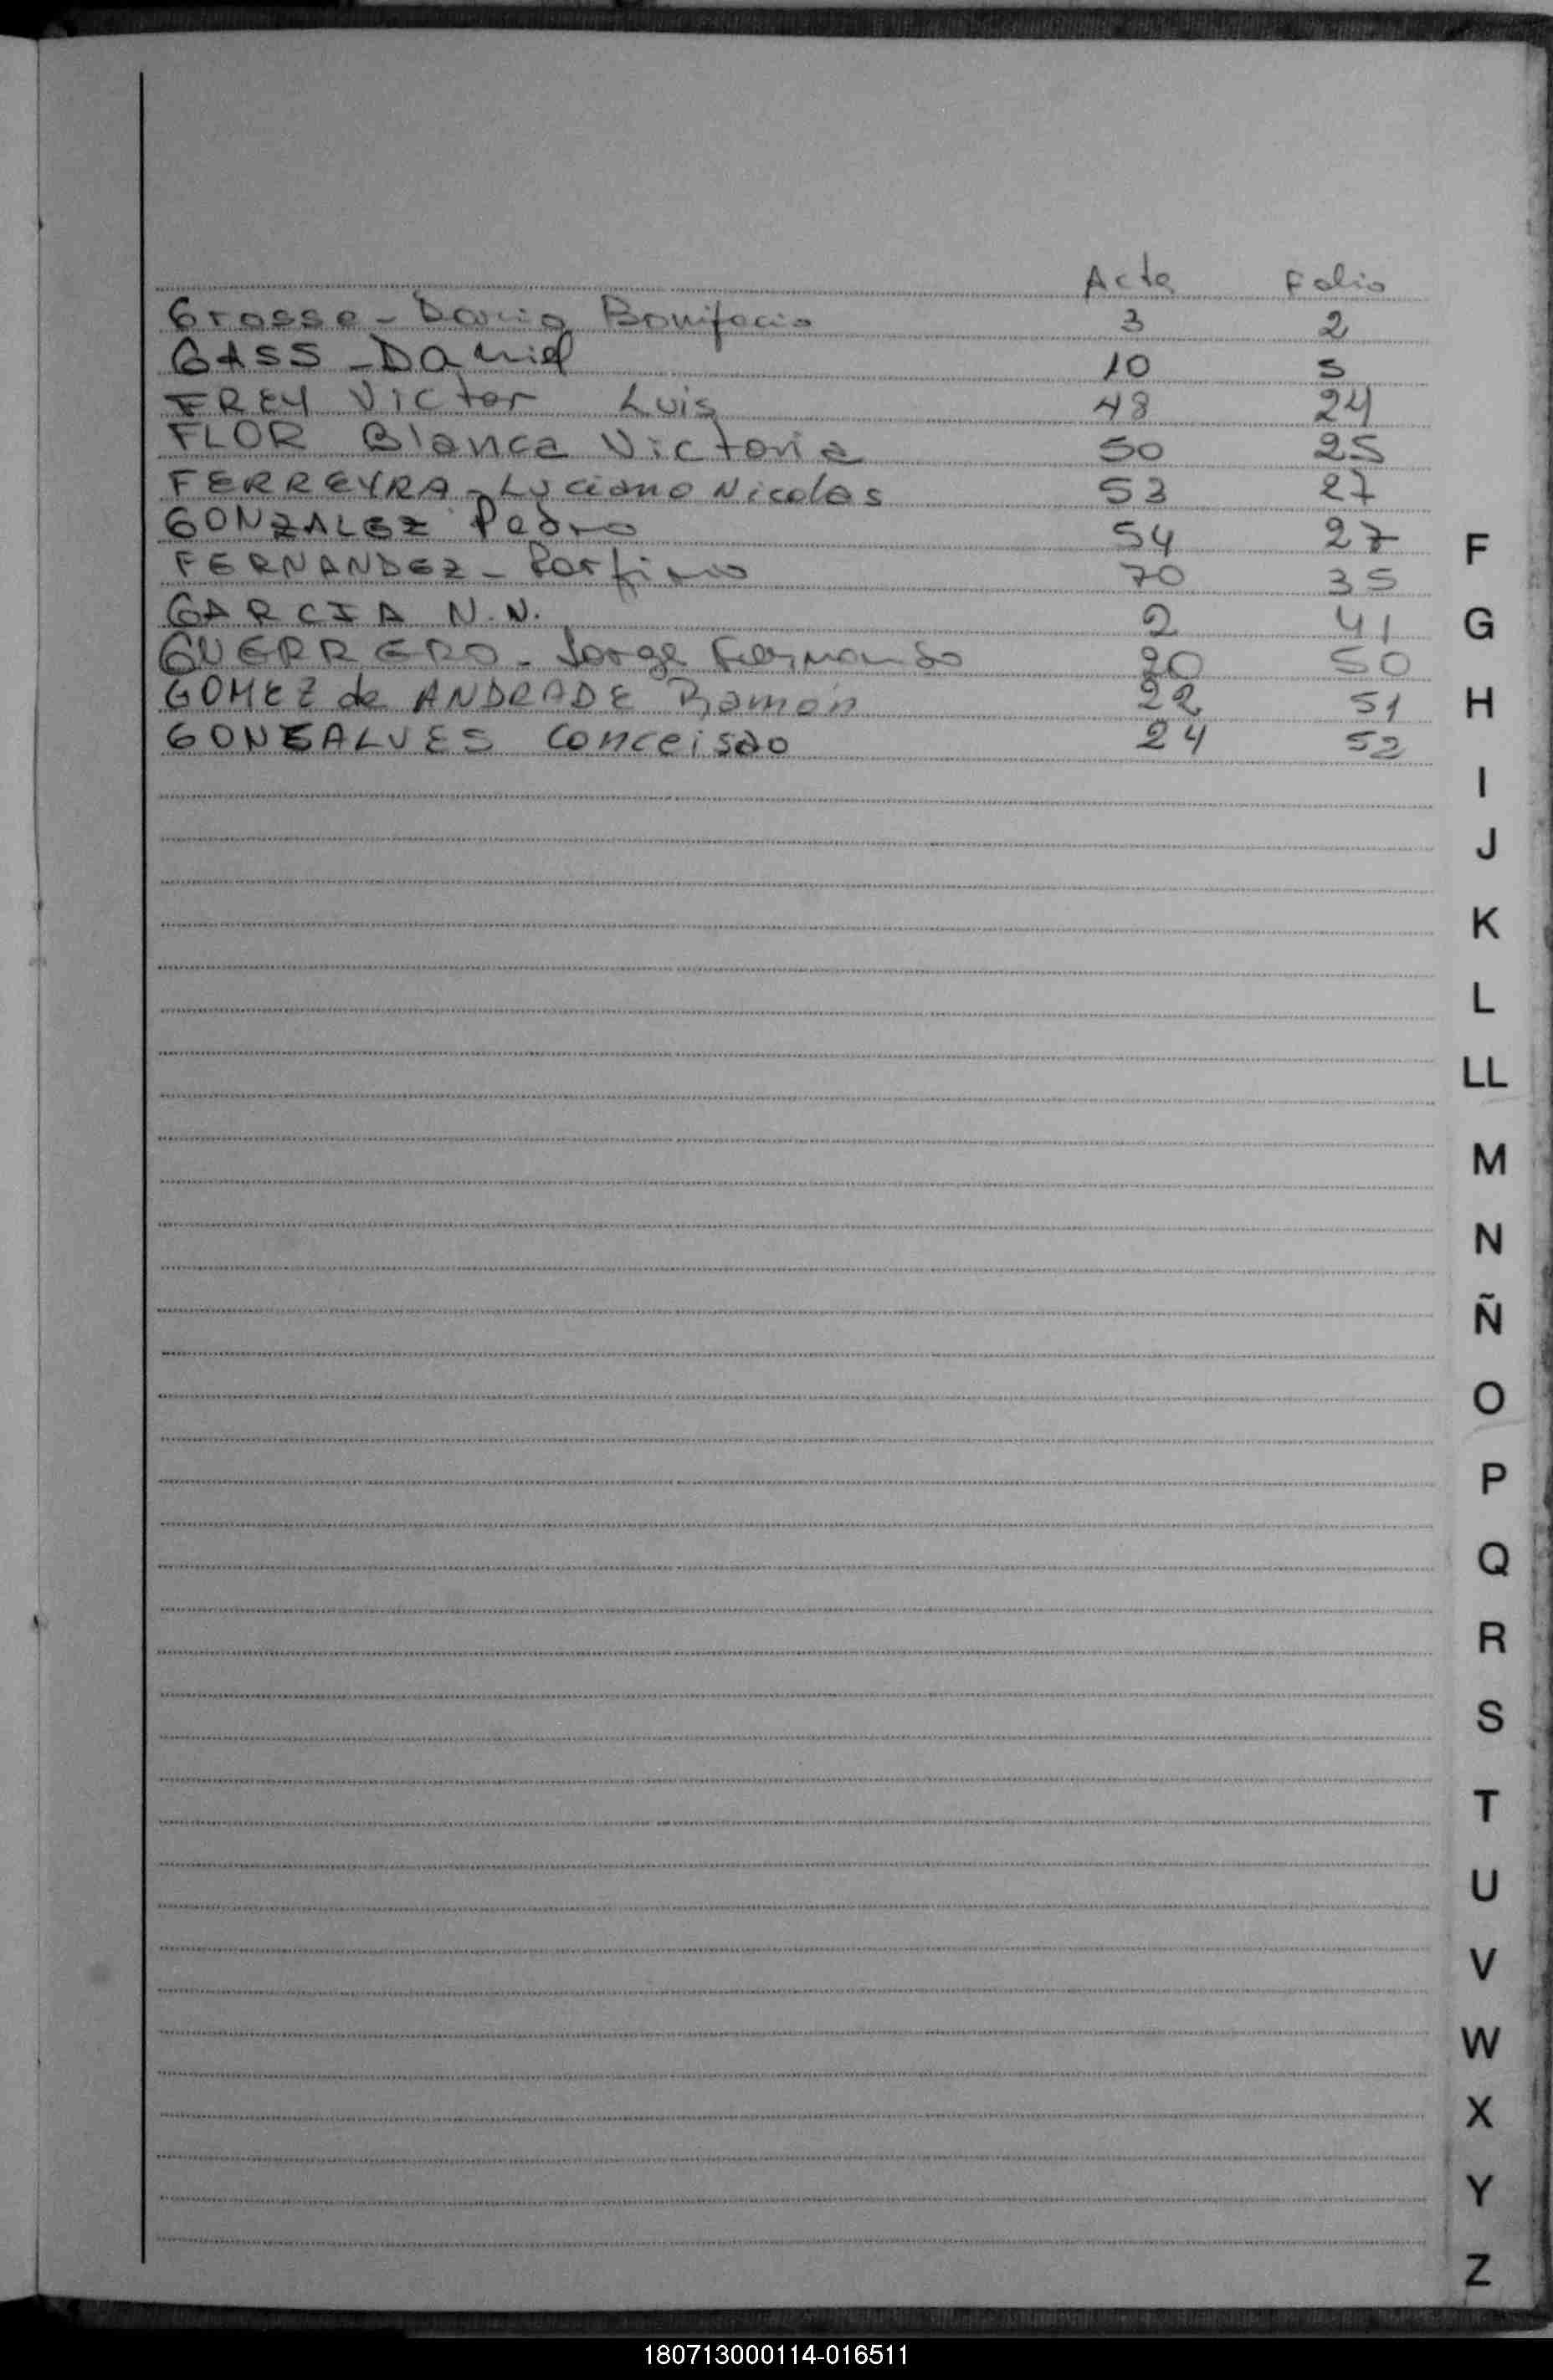 Acta Folio
Grosso - Dario Bonifacio 3 2
GASS - Daniel 10 5
FREY Victor Luis 48 24
FLOR Blanca Victoria 50 25
FERREYRA - Luciano Nicolas 53 27
GONZALEZ Pedro 54 27
FERNANDEZ - Porfirio 70 35
GARCIA N.N. 2 41
GUERRERO - Jorge Fernando 20 50
GOMEZ de ANDRADE Ramón 22 51
GONSALVES Conceisão 24 52
F
G
H
I
J
K
L
LL
M
N
Ñ
O
P
Q
R
S
T
U
V
W
X
Y
Z
180713000114-016511